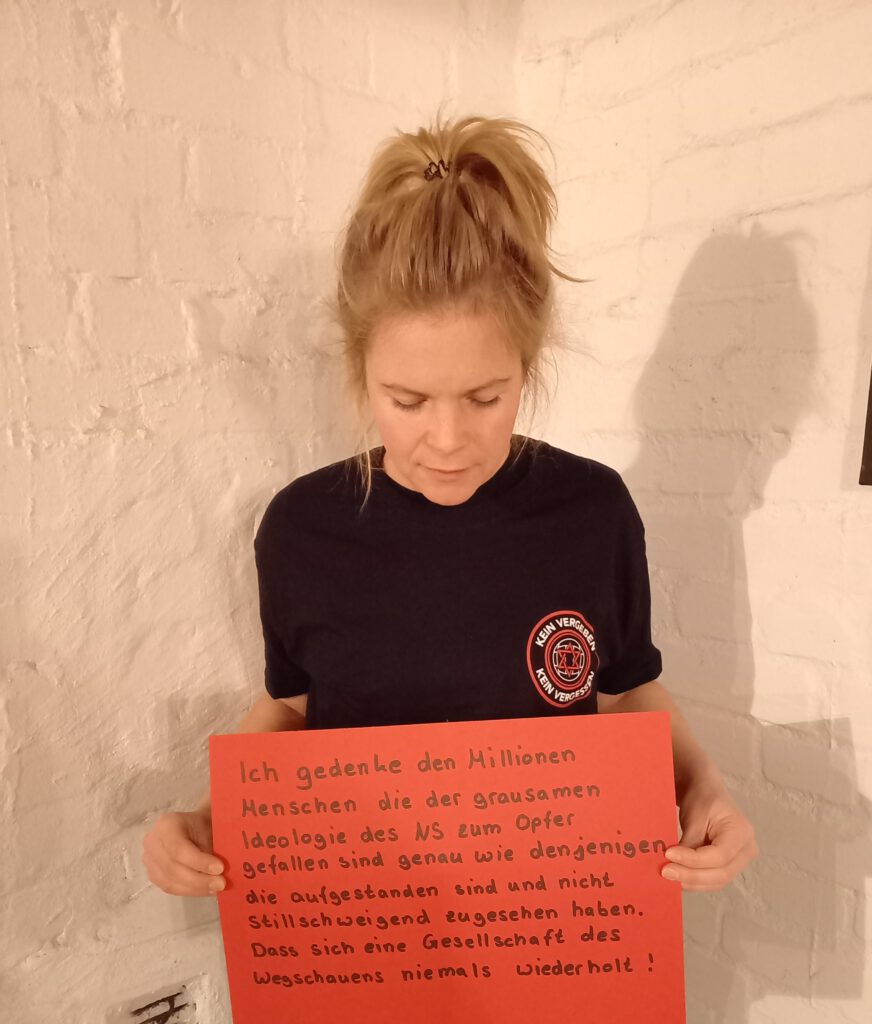 KEIN VERGEBEN
KEIN VERGESSEN
Ich gedenke den Millionen
Menschen die der grausamen
Ideologie des NS zum Opfer
gefallen sind genau wie denjenigen
die aufgestanden sind und nicht
Stillschweigend zugesehen haben.
Dass sich eine Gesellschaft des
Wegschauens niemals wiederholt !